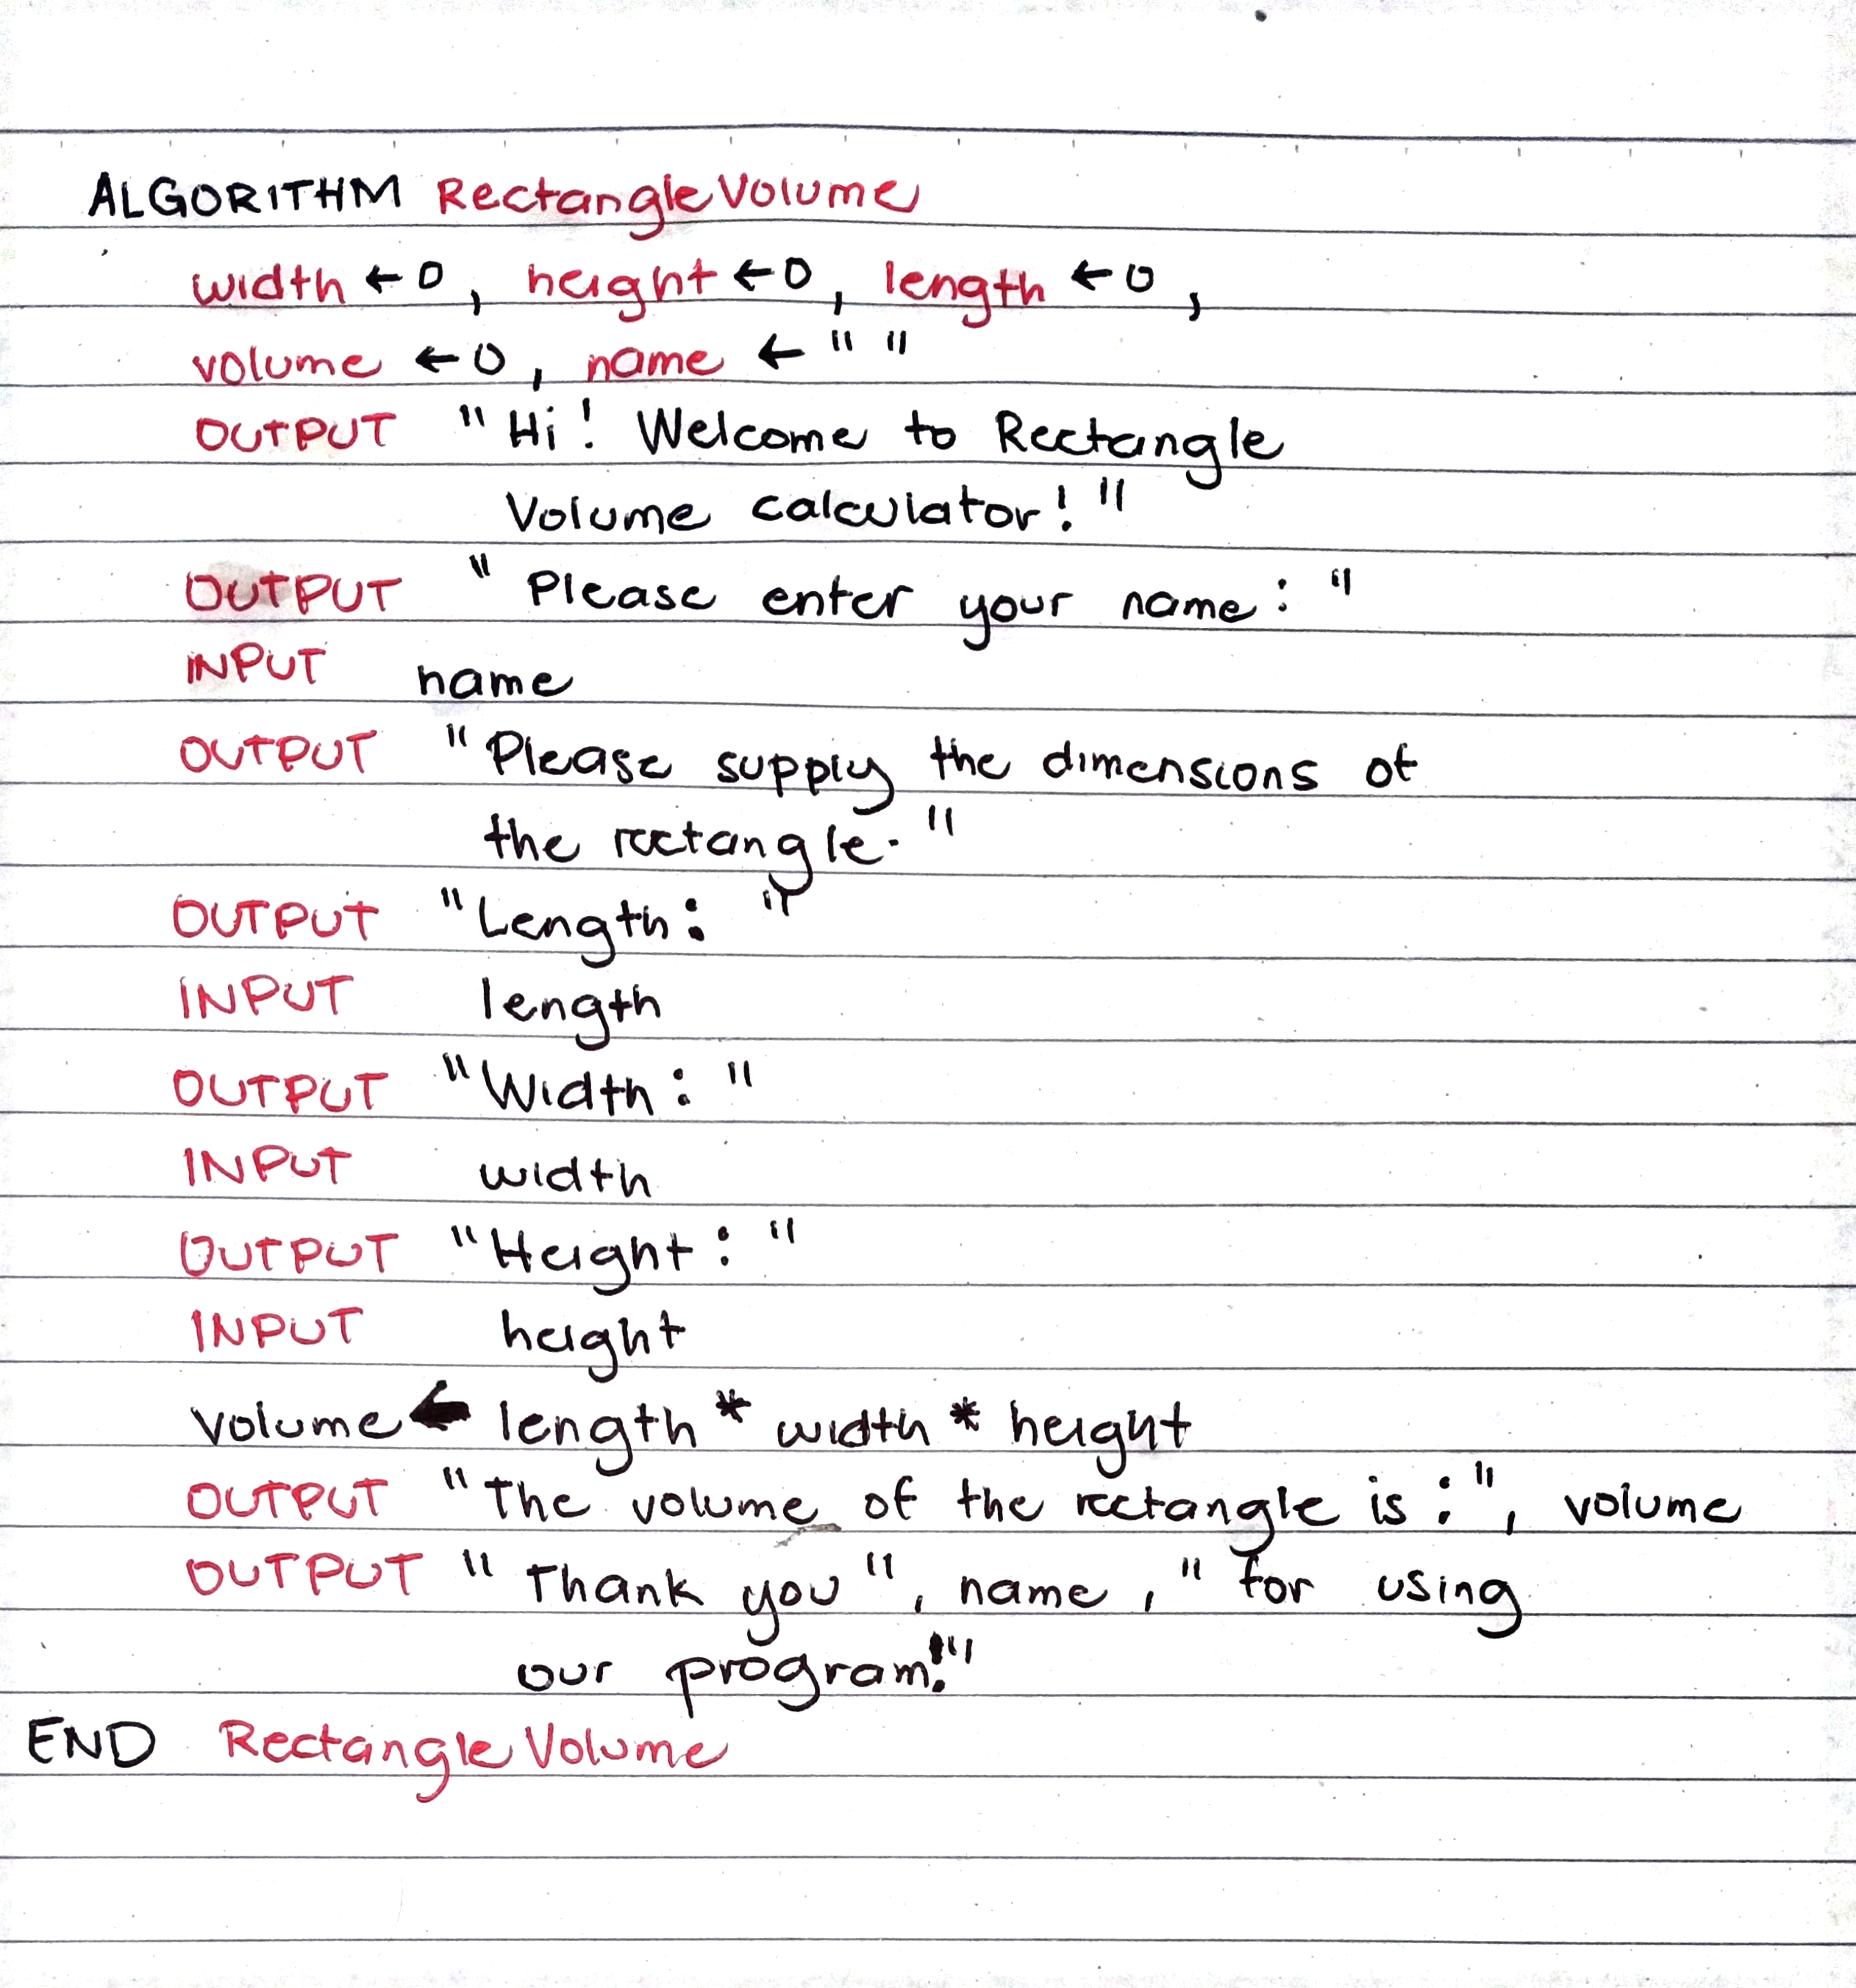 ALGORITHM RectangleVolume
width ← 0, height ← 0, length ← 0,
volume ← 0, name ← " "
OUTPUT "Hi! Welcome to Rectangle
Volume calculator!"
OUTPUT "Please enter your name: "
INPUT name
OUTPUT "Please supply the dimensions of
the rectangle."
OUTPUT "Length: "
INPUT length
OUTPUT "Width: "
INPUT width
OUTPUT "Height: "
INPUT height
volume ← length * width * height
OUTPUT "The volume of the rectangle is:", volume
OUTPUT "Thank you", name, "for using
our program!"
END RectangleVolume